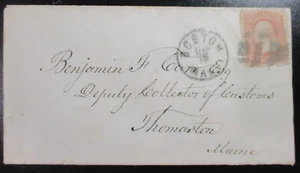 BOSTON
MASS.
Benjamin F. Carr, Esq
Deputy Collector of Customs
Thomaston
Maine